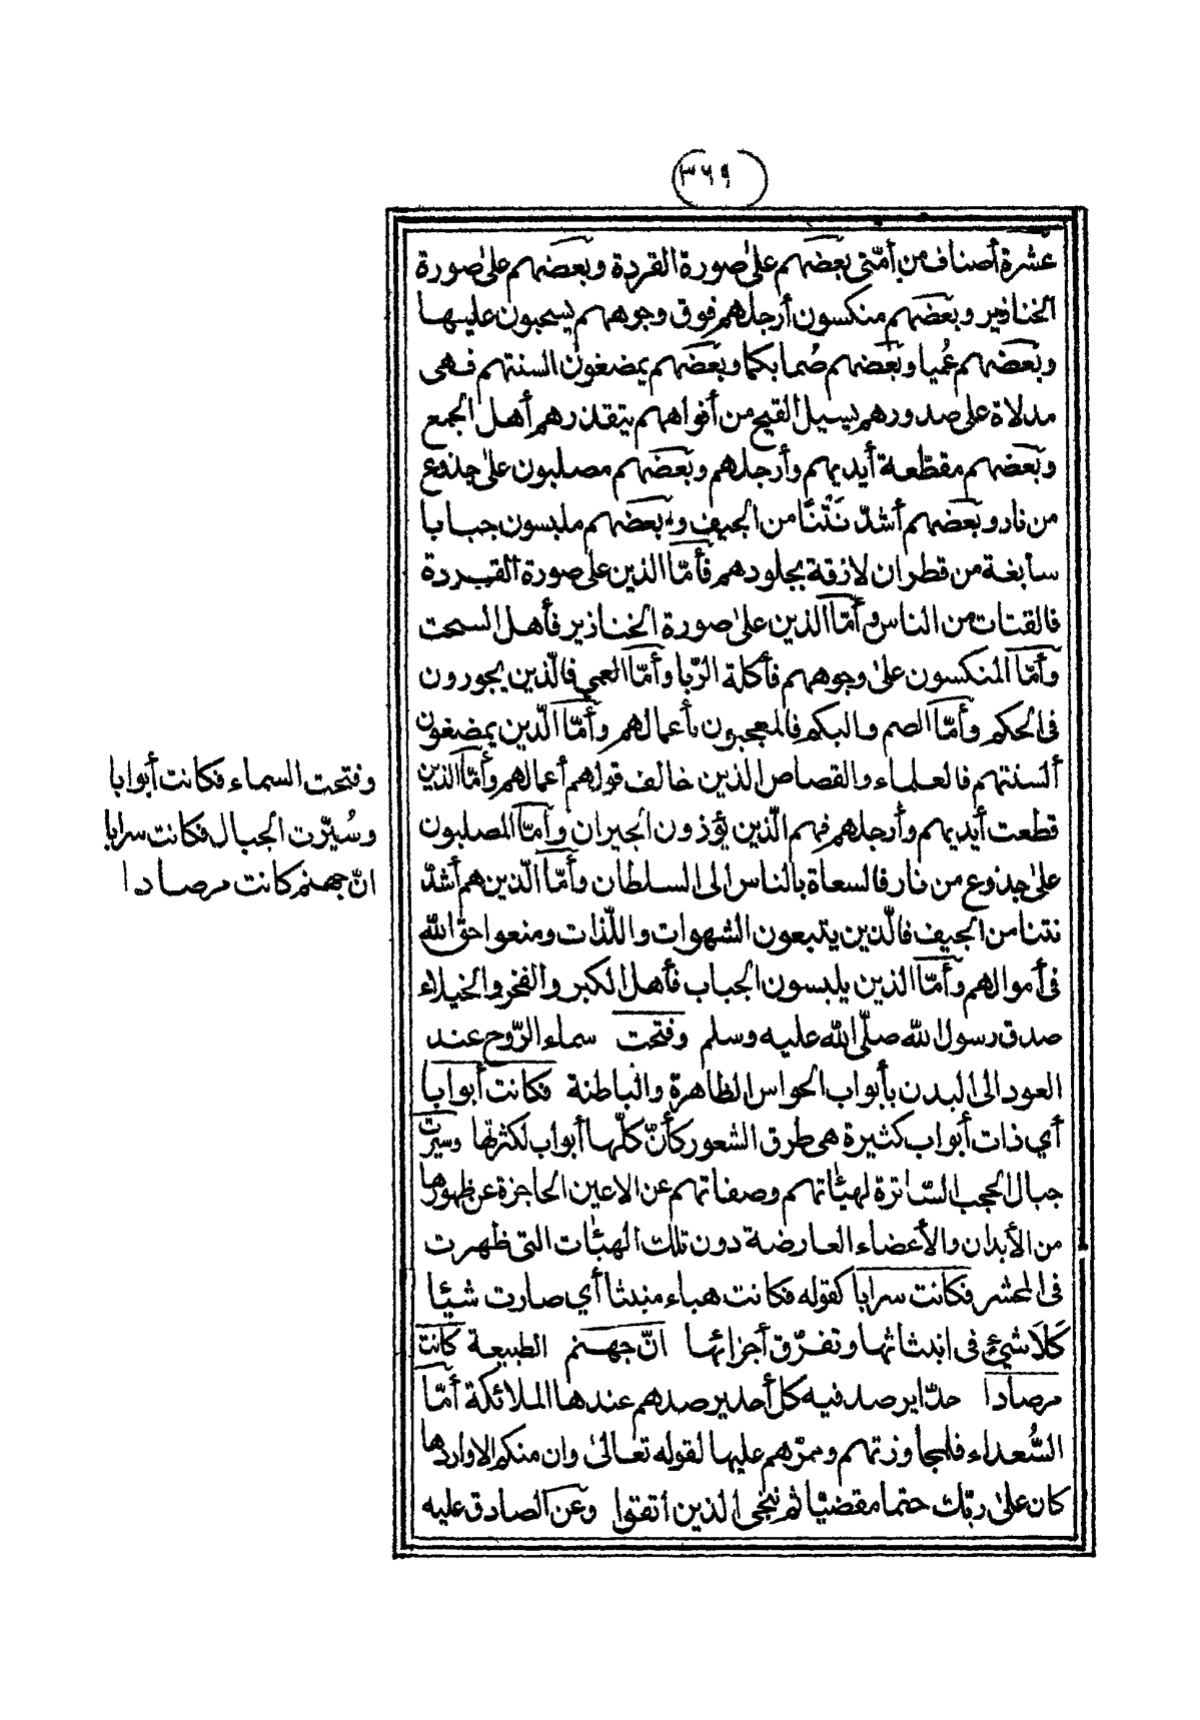 ٣٦٩
عشرة أصناف من أمّتى بعضهم على صورة القردة وبعضهم على صورة
الخنازير وبعضهم منكسون أرجلهم فوق وجوههم يسحبون عليها
وبعضهم عُميا وبعضهم صُما بكما وبعضهم يمضغون السنتهم فهى
مدلاة على صدورهم يسيل القيح من أفواههم يتقذرهم أهل الجمع
وبعضهم مقطّعة أيديهم وأرجلهم وبعضهم مصلبون على جذوع
من نار وبعضهم أشدّ نَتْنًا من الجيف وبعضهم ملبسون جبابا
سابغة من قطران لازقة بجلودهم فأمّا الذين على صورة القردة
فالقتات من الناس وأمّا الذين على صورة الخنازير فأهل السحت
وأمّا المنكسون على وجوههم فأكلة الرّبا وأمّا العمي فالّذين يجورون
فى الحكم وأمّا الصم والبكم فالمعجبون بأعمالهم وأمّا الّذين يمضغون
ألسنتهم فالعلماء والقصاص الذين خالف قولهم أعمالهم وأمّا الذين
قطعت أيديهم وأرجلهم فهم الّذين يؤذون الجيران وأمّا المصلبون
على جذوع من نار فالسعاة بالناس الى السلطان وأمّا الّذين هم أشدّ
نتنا من الجيف فالّذين يتبعون الشهوات واللّذات ومنعوا حق الله
فى أموالهم وأمّا الذين يلبسون الجباب فأهل الكبر والفخر والخيلاء
صدق رسول الله صلّى الله عليه وسلم وفتحت سماء الرّوح عند
العود الى البدن بأبواب الحواس الظاهرة والباطنة فكانت أبوابا
أي ذات أبواب كثيرة هى طرق الشعور كأنّ كلّها أبواب لكثرتها وسيرت
جبال الحجب السّاترة لهيئاتهم وصفاتهم عن الاعين الحاجزة عن ظهورها
من الأبدان والأعضاء العارضة دون تلك الهيئات التى ظهرت
فى المحشر فكانت سرابا كقوله فكانت هباء منبثا أي صارت شيئا
كَلَا شيءٍ فى انبثاثها وتفرّق أجزائها انّ جهنم الطبيعة كانت
مرصادا حدّا يرصد فيه كل أحد يرصدهم عندها الملائكة أمّا
السُّعداء فلمجاوزتهم وممرّهم عليها لقوله تعالىٰ وان منكم الا واردها
كان على ربّك حتما مقضيّا ثم ننجى الذين اتقوا وعن الصادق عليه
وفتحت السماء فكانت أبوابا
وسُيّرت الجبال فكانت سرابا
انّ جهنم كانت مرصادا